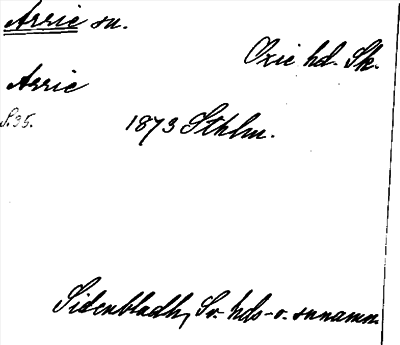 Arrie sn.
Oxie hd. Sk.
Arrie
S. 35. 1873 Sthlm.
Sidenbladh, Sv. hds- o. snnamn.